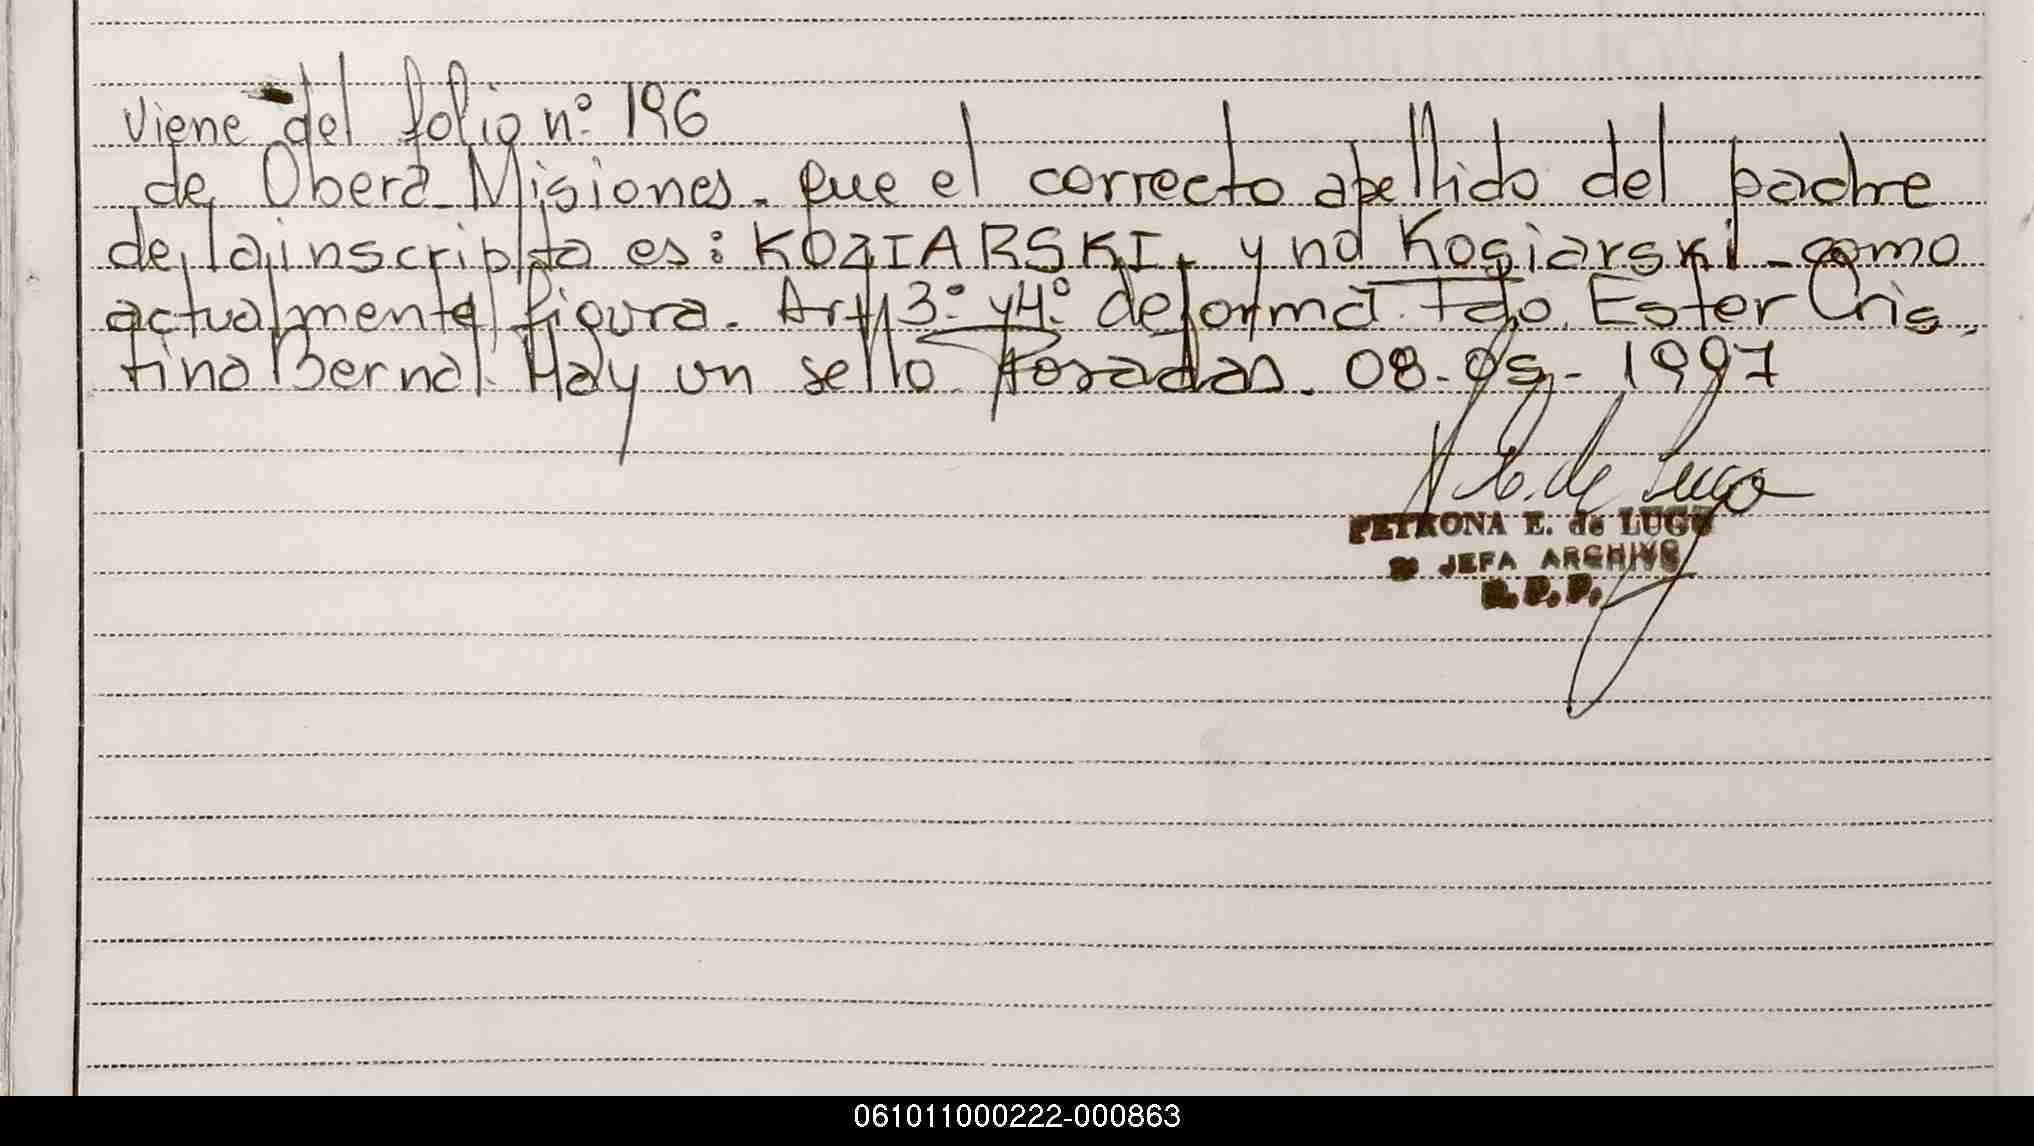 viene del folio nº 196
de Oberá Misiones. que el correcto apellido del padre
de la inscripta es: KOZIARSKI, y no Kosiarski - como
actualmente figura. Art. 3º y 4º de forma. Fdo. Ester Cris
tina Bernal. Hay un sello. Posadas. 08-05-1997
P. E. de Lugo
PETRONA E. de LUGO
JEFA ARCHIVO
R.P.P.
061011000222-000863